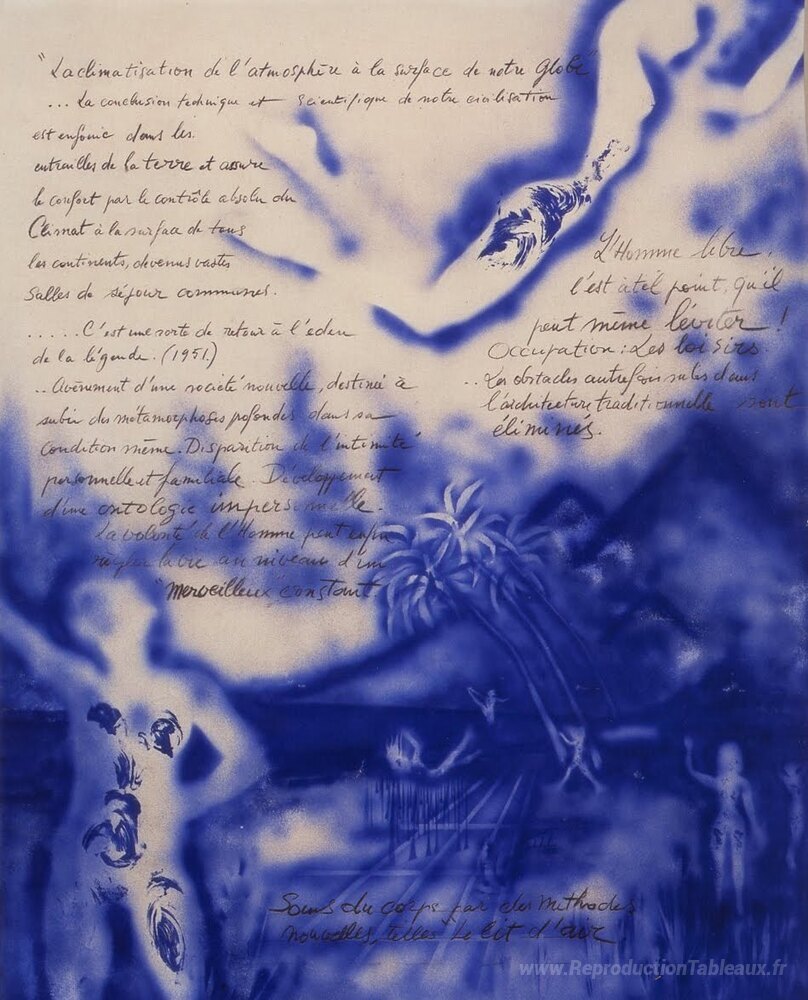 "La climatisation de l'atmosphère à la surface de notre Globe"
... La conclusion technique et scientifique de notre civilisation
est enfouie dans les
entrailles de la terre et assure
le confort par le contrôle absolu du
Climat à la surface de tous
les continents, devenus vastes
Salles de séjour communes.
..... C'est une sorte de retour à l'eden
de la légende. (1951.)
.. Avènement d'une société nouvelle, destinée à
subir des métamorphoses profondes dans sa
condition même. Disparition de l'intimité
personnelle et familiale. Développement
d'une ontologie impersonnelle.
La volonté de l'Homme peut enfin
régler la vie au niveau d'un
"merveilleux" constant
L'Homme libre,
l'est à tel point, qu'il
peut même léviter !
Occupation : Les loisirs.
.. Les obstacles autrefois subis dans
l'architecture traditionnelle sont
éliminés.
Soins du corps par des méthodes
nouvelles, telles le lit d'air
www.ReproductionTableaux.fr